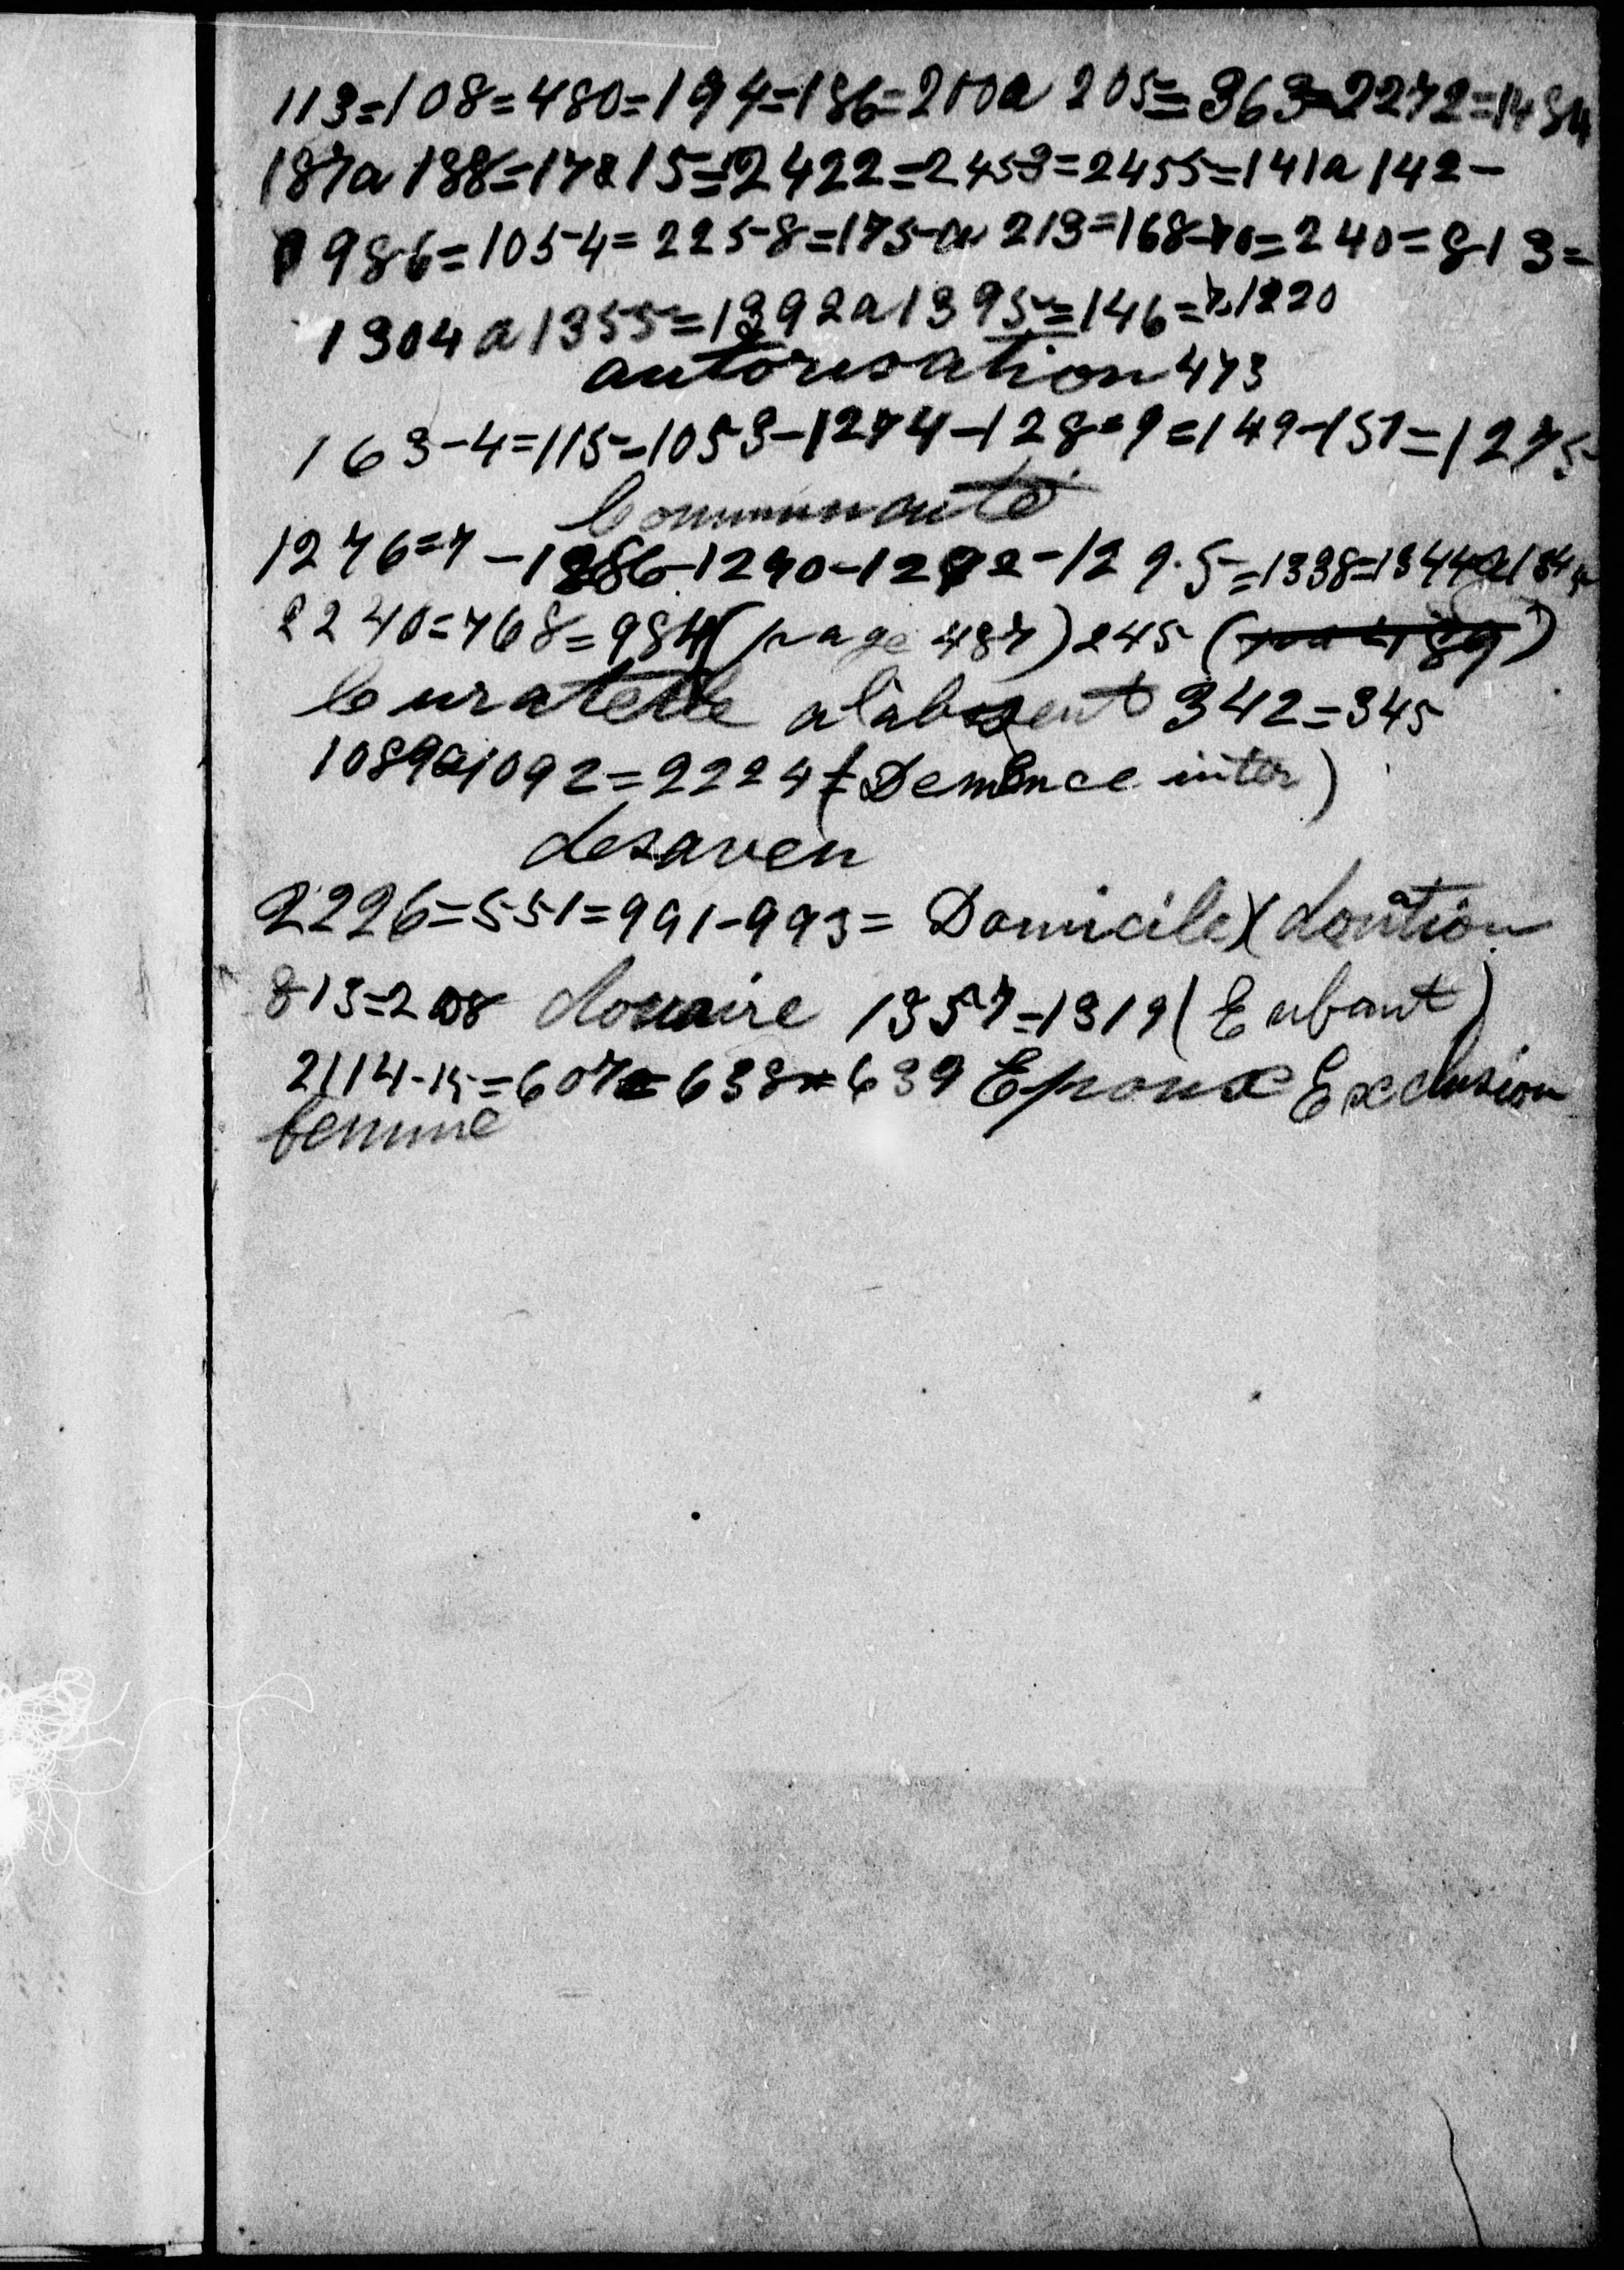 113=108=480=194=186=200a 205=363=2272=1484
187a 188=17215=2422=2453=2455=141a 142-
986=105-4=225-8=175-a 213=168-70=240=813=
1304 a 1355=1392a1395=146=1220
autorisation 473
163-4=115=1053-1274-128=9=149-151=1275
Communauté
1276=7-1286-1290-1292-129.5=1338=1344a134
2240=768=984 (page 487) 245
Curatelle a l'absent 342=345
1089a1092=2224 (Demence inter)
desaveu
2226=551=991-993= Domicile)(donation
813=208 douaire 1357=1319 (Enfant)
2114-15=607=638=639 Epoux Exclusion
femme